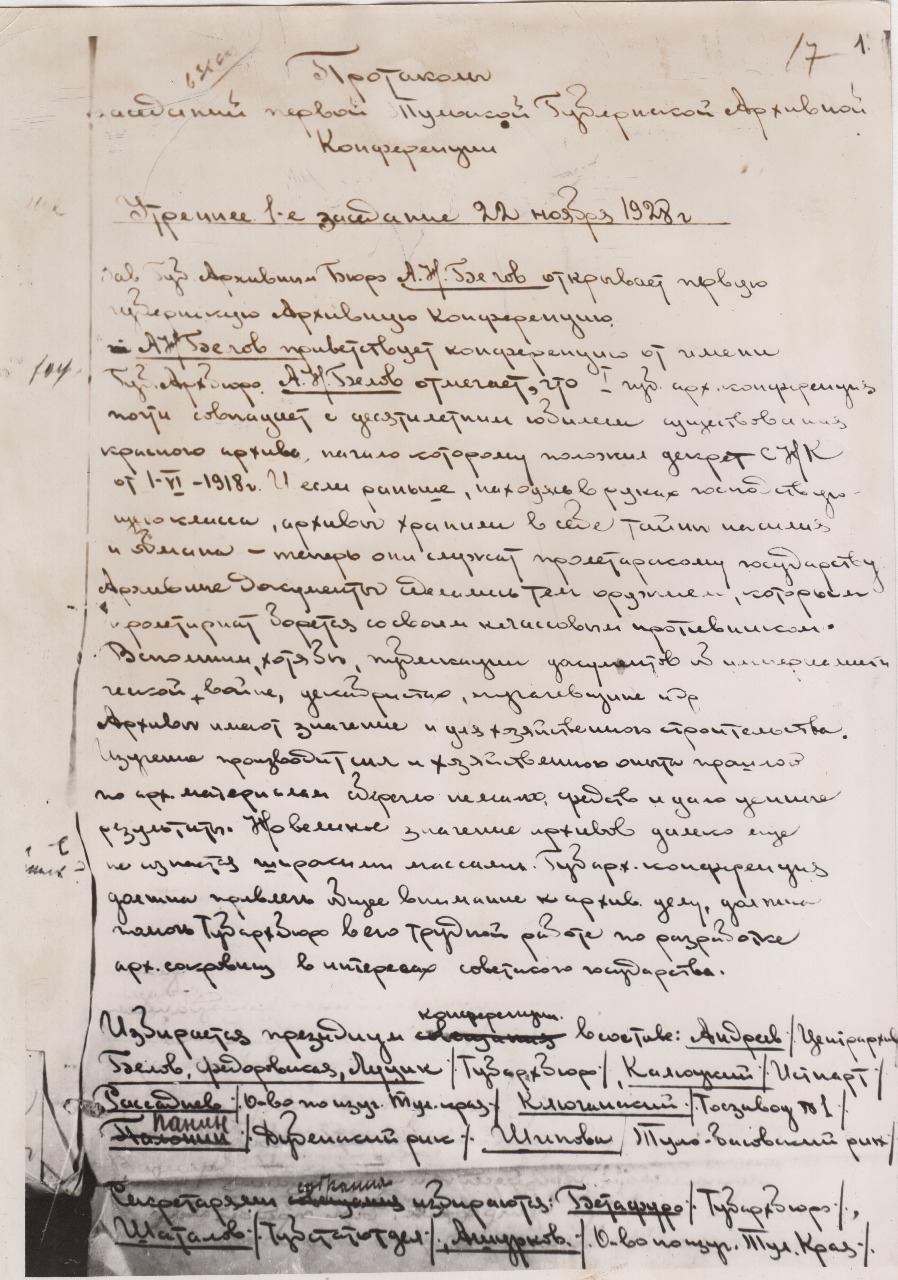 17 1.
Протаколы
заседаний первой Тульской Губернской Архивной
Конференции
Утреннее 1-е заседание 22 ноября 1928 г
Зав Губ Архивным Бюро А.Н. Белов открывает первую
губернскую Архивную Конференцию.
А.Н. Белов приветствует конференцию от имени
Губ. Арх.бюро. А.Н. Белов отмечает, что I губ. арх. конференция
почти совпадает с десятилетним юбилеем существования
красного архива, начало которому положил декрет СНК
от 1-VI-1918 г. И если раньше, находясь в руках господствую-
щего класса, архивы хранили в себе тайны насилия
и обмана – теперь они служат пролетарскому государству.
Архивные документы сделались тем оружием, которым
пролетариат борется со своим классовым противником.
Вспомним, хотя бы, публикации документов об империалисти
ческой войне, декабристах, пугачевщине и др
Архивы имеют значение и для хозяйственного строительства.
Изучение производит. сил и хозяйственного опыта прошлого
по арх. материалам сберегло немало средств и дало ценные
результаты. Но великое значение архивов далеко еще
не сознается широкими массами. Губ.арх. конференция
должна привлечь общее внимание к архив. делу, должна
помочь Губархбюро в его трудной работе по разработке
арх. сокровищ в интересах советского государства.
конференции
Избирается президиум совещания в составе: Андреев /Центрархив
Белов, Федоровская, Луцик /Губархбюро/, Калюцкий /Истпарт/
Рассаднев /О-во по изуч. Тул. края/ Ключанский /Госзавод №1/
Панин
/Дубенский рик/. Шипова /Туло-Засовский рик/
Секретарями совещания избираются: Бетафуро /Губархбюро/,
Шаталов /Губстатотдел/, Ашурков. /О-во по изуч. Тул. Края/.